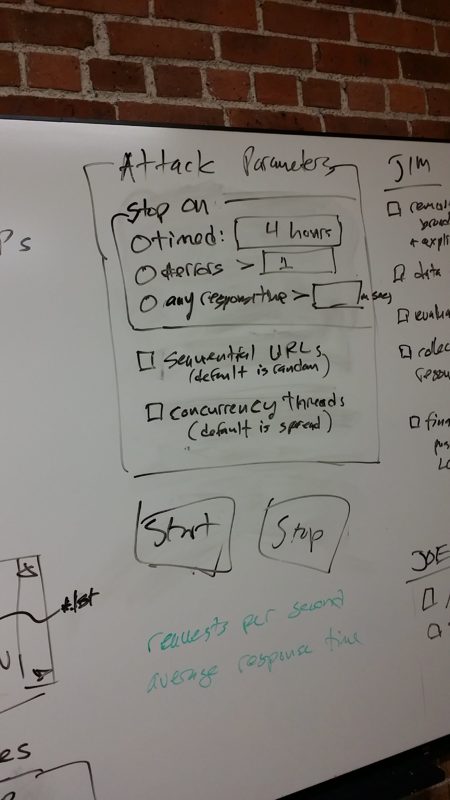 Attack Parameters
Stop on
timed: 4 hours
#errors > 1
any response time > msec
Sequential URLs
(default is random)
concurrency threads
(default is spread)
Start
Stop
requests per second
average response time
JIM
data
JOE